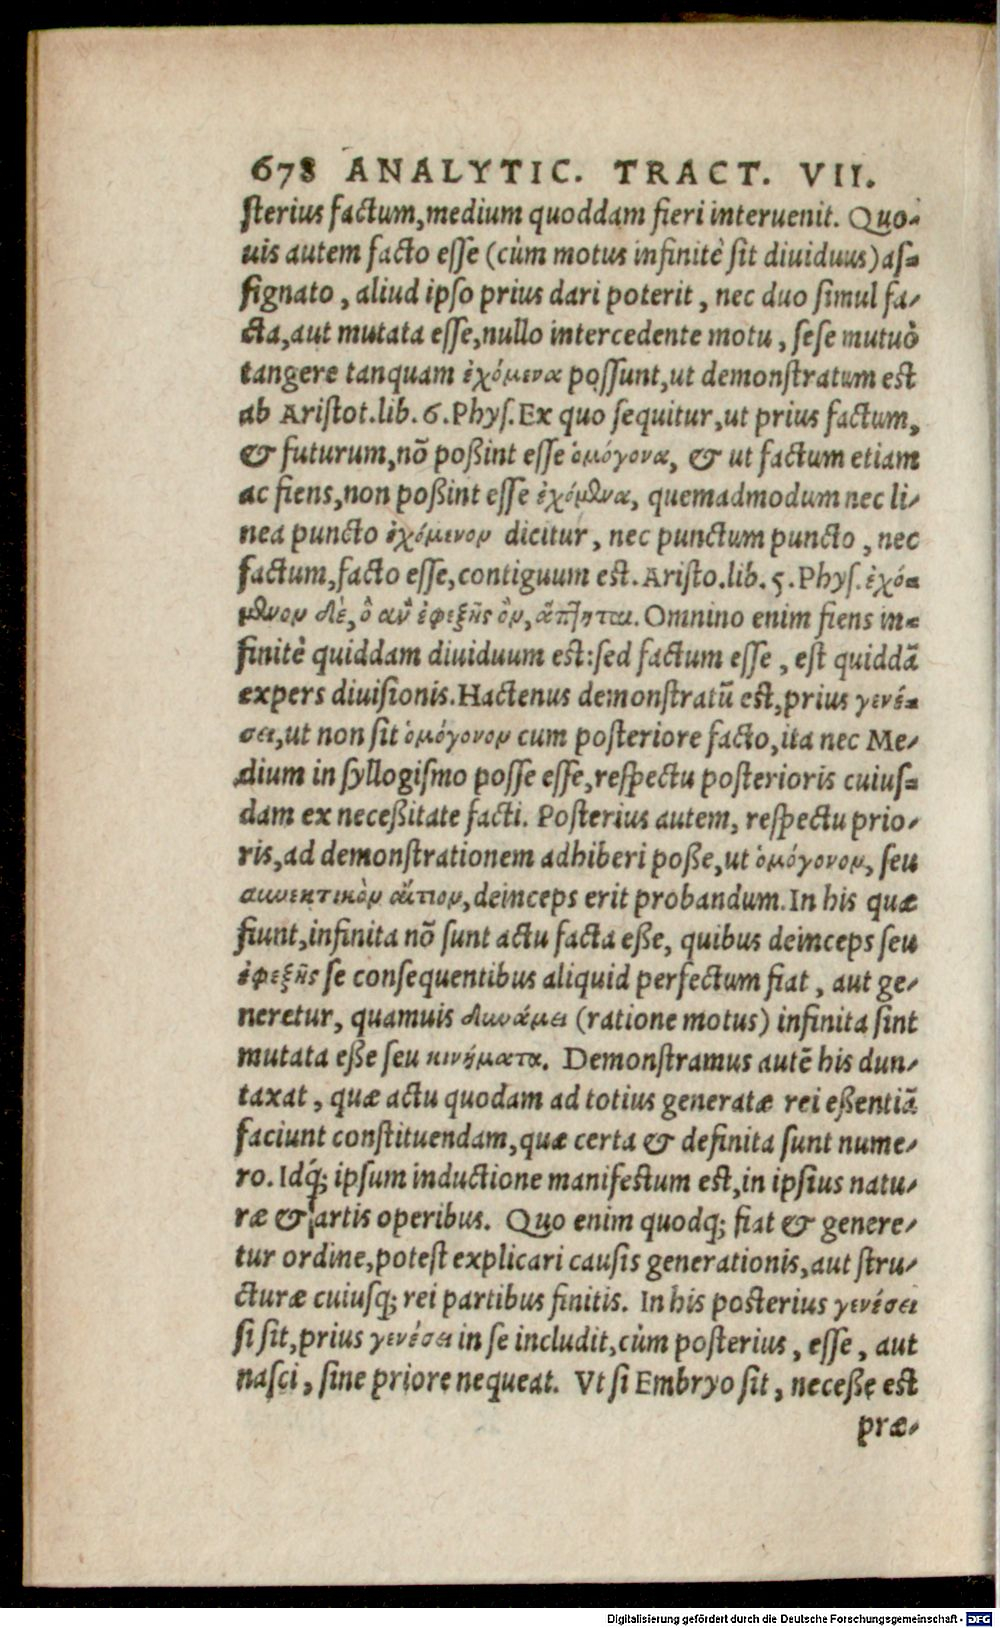 678 ANALYTIC. TRACT. VII.
sterius factum, medium quoddam fieri interuenit. Quo-
uis autem facto esse (cùm motus infinitè sit diuiduus) as-
signato, aliud ipso prius dari poterit, nec duo simul fa-
cta, aut mutata esse, nullo intercedente motu, sese mutuò
tangere tanquam ἐχόμενα possunt, ut demonstratum est
ab Aristot. lib. 6. Phys. Ex quo sequitur, ut prius factum,
& futurum, nō poßint esse ὁμόγονα, & ut factum etiam
ac fiens, non poßint esse ἐχόμενα, quemadmodum nec li-
nea puncto ἐχόμενον dicitur, nec punctum puncto, nec
factum, facto esse, contiguum est. Aristo. lib. 5. Phys. ἐχό-
μενον δὲ, ὃ ἂν ἐφεξῆς ὂν, ἅπτηται. Omnino enim fiens in-
finitè quiddam diuiduum est: sed factum esse, est quiddā
expers diuisionis. Hactenus demonstratū est, prius γενέ-
σει, ut non sit ὁμόγονον cum posteriore facto, ita nec Me-
dium in syllogismo posse esse, respectu posterioris cuius-
dam ex neceßitate facti. Posterius autem, respectu prio-
ris, ad demonstrationem adhiberi poße, ut ὁμόγονον, seu
συνεκτικὸν αἴτιον, deinceps erit probandum. In his quæ
fiunt, infinita nō sunt actu facta eße, quibus deinceps seu
ἐφεξῆς se consequentibus aliquid perfectum fiat, aut ge-
neretur, quamuis δυνάμει (ratione motus) infinita sint
mutata eße seu κινήματα. Demonstramus autē his dun-
taxat, quæ actu quodam ad totius generatæ rei eßentiā
faciunt constituendam, quæ certa & definita sunt nume-
ro. Idq́; ipsum inductione manifestum est, in ipsius natu-
ræ & artis operibus. Quo enim quodq; fiat & genere-
tur ordine, potest explicari causis generationis, aut stru-
cturæ cuiusq; rei partibus finitis. In his posterius γενέσει
si sit, prius γενέσει in se includit, cùm posterius, esse, aut
nasci, sine priore nequeat. Vt si Embryo sit, neceße est
præ-
Digitalisierung gefördert durch die Deutsche Forschungsgemeinschaft - DFG